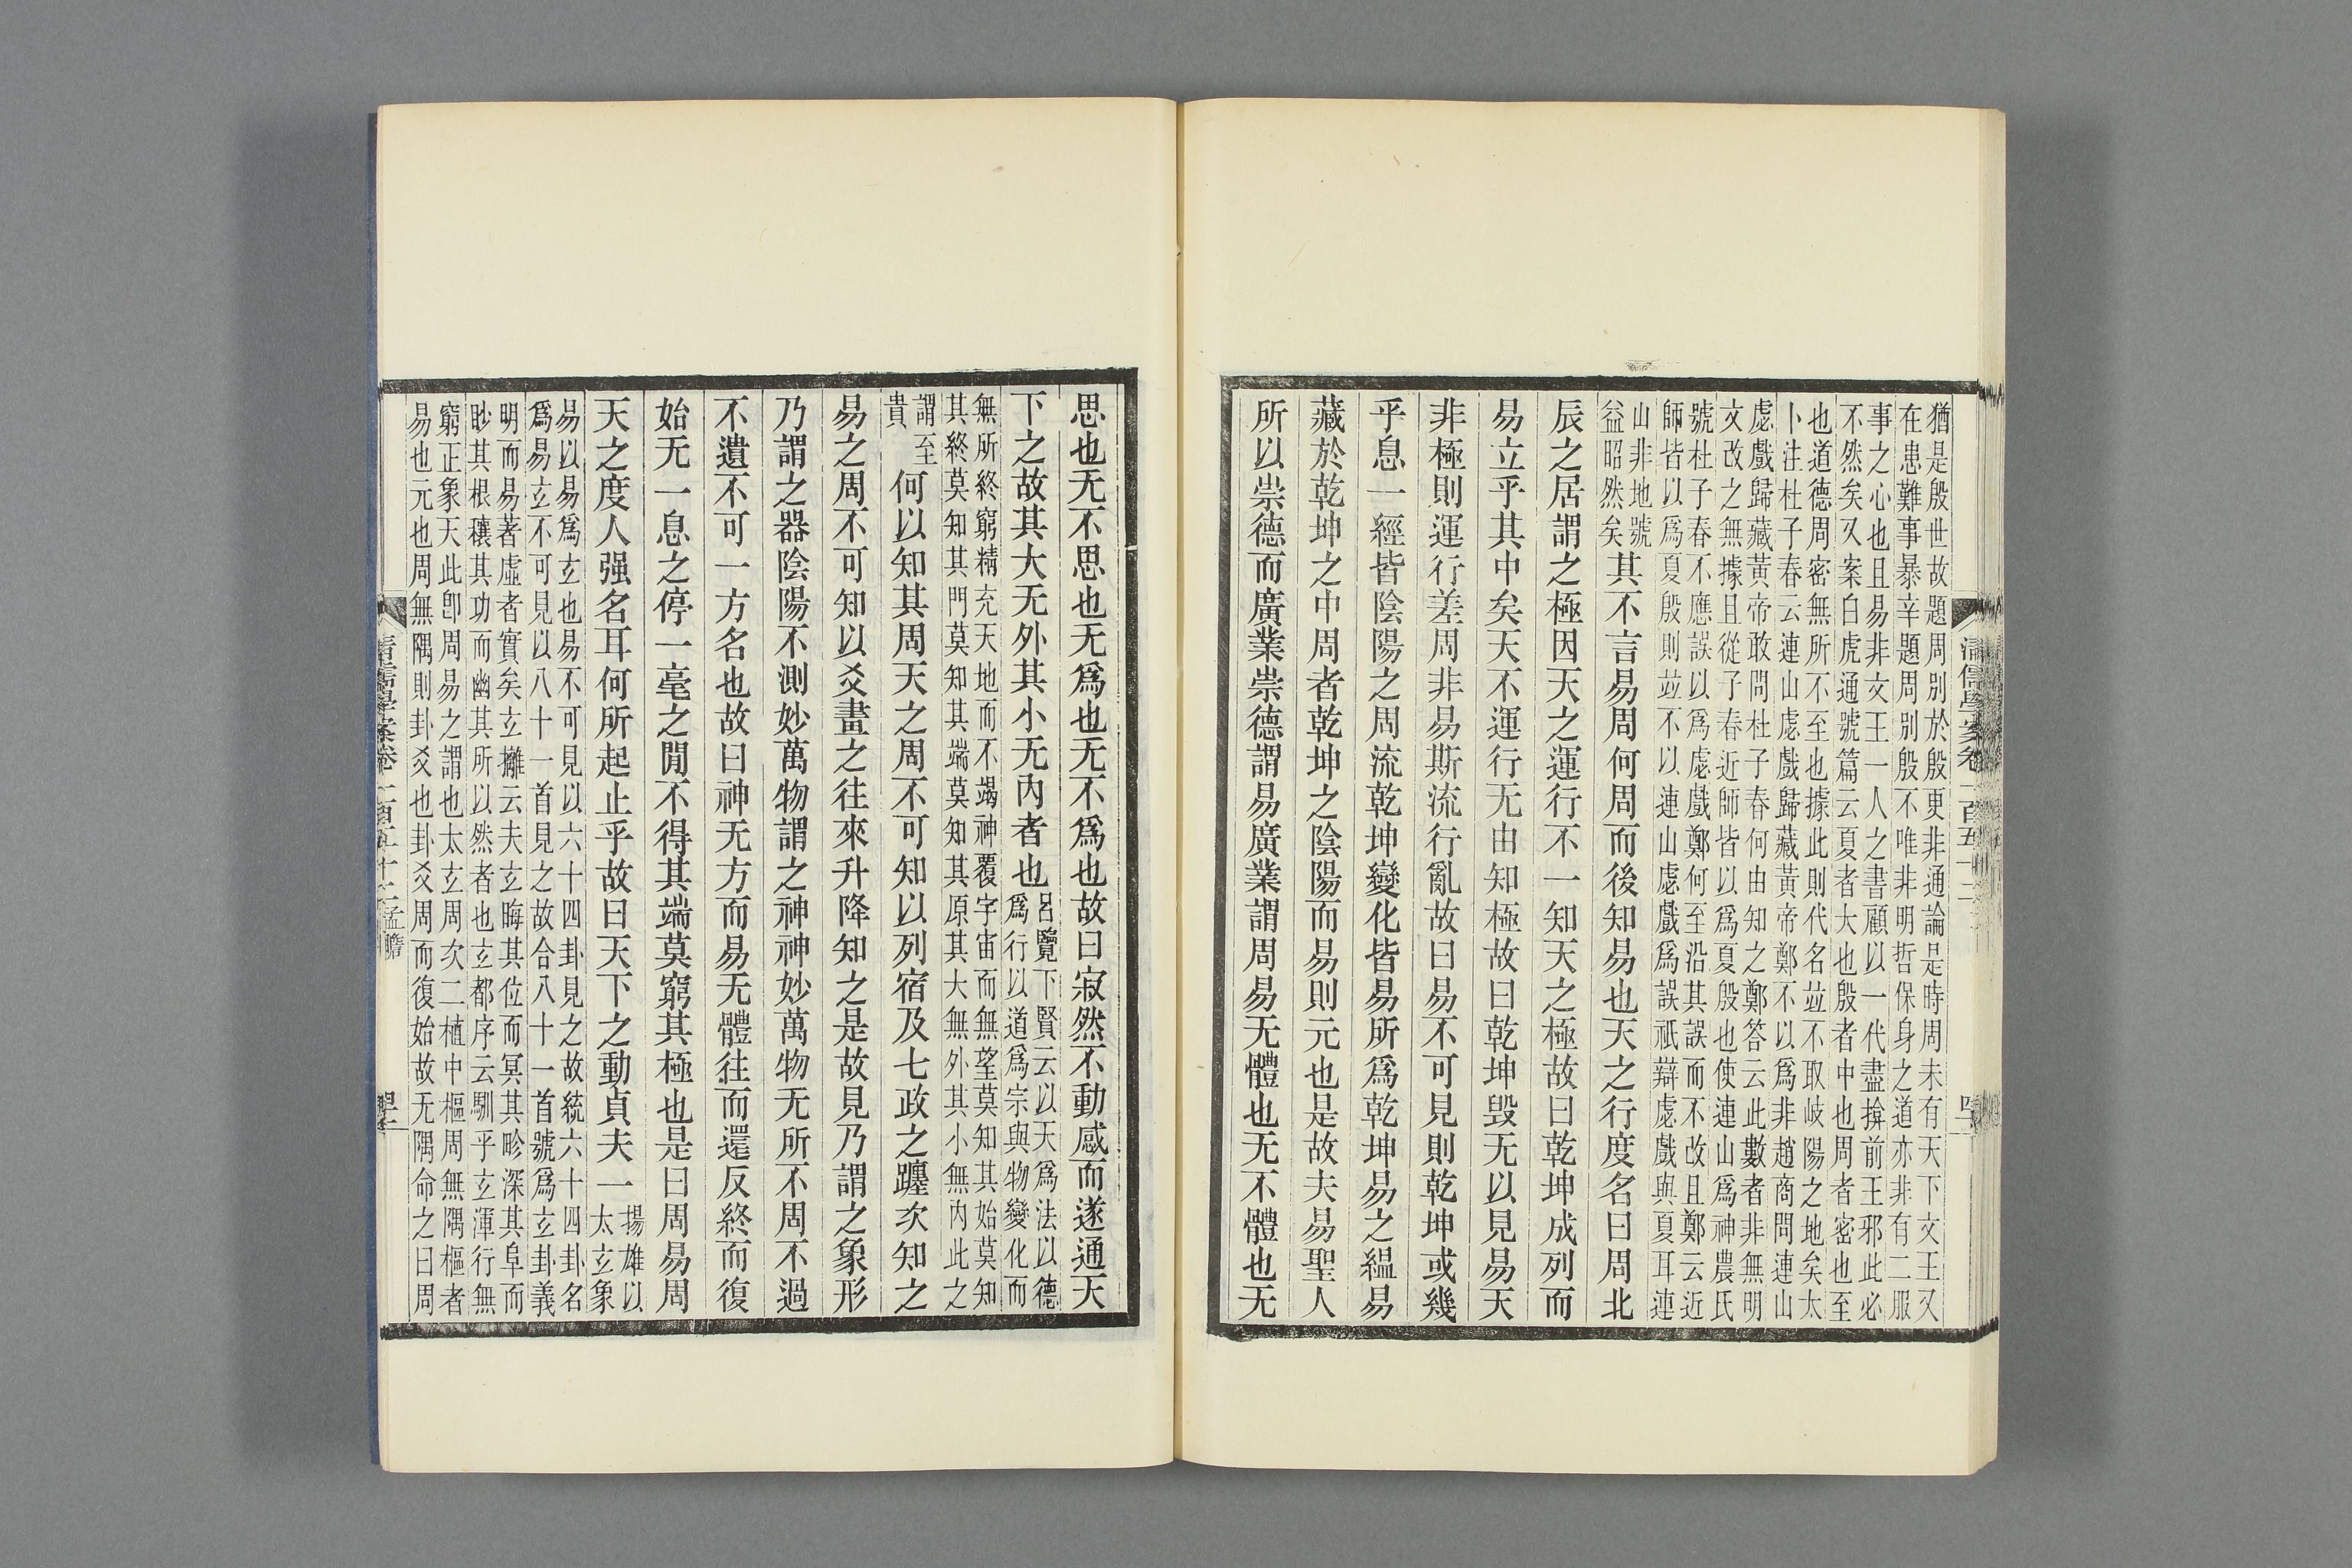 猶是殷世故題周別於殷更非通論是時周未有天下文王又
在患難事暴辛題周別殷不唯非明哲保身之道亦非有二服
事之心也且易非文王一人之書顧以一代盡揜前王邪此必
不然矣又案白虎通號篇云夏者大也殷者中也周者密也至
也道德周密無所不至也據此則代名竝不取岐陽之地矣太
卜注杜子春云連山虙戲歸藏黃帝鄭不以為非趙商問連山
虙戲歸藏黃帝敢問杜子春何由知之鄭答云此數者非無明
文改之無據且從子春近師皆以爲夏殷也使連山爲神農氏
號杜子春不應誤以爲虙戲鄭何至沿其誤而不改且鄭云近
師皆以爲夏殷則竝不以連山虙戲爲誤祇辯虙戲與夏耳連
山非地號
益昭然矣
其不言易周何周而後知易也天之行度名曰周北
辰之居謂之極因天之運行不一知天之極故曰乾坤成列而
易立乎其中矣天不運行无由知極故曰乾坤毀无以見易天
非極則運行差周非易斯流行亂故曰易不可見則乾坤或幾
乎息一經皆陰陽之周流乾坤變化皆易所爲乾坤易之縕易
藏於乾坤之中周者乾坤之陰陽而易則元也是故夫易聖人
所以崇德而廣業崇德謂易廣業謂周易无體也无不體也无
清儒學案卷一百五十二
思也无不思也无爲也无不爲也故曰寂然不動感而遂通天
下之故其大无外其小无內者也
呂覽下賢云以天爲法以德
爲行以道爲宗與物變化而
無所終窮精充天地而不竭神覆宇宙而無望莫知其始莫知
其終莫知其門莫知其端莫知其原其大無外其小無內此之
謂至
貴
何以知其周天之周不可知以列宿及七政之躔次知之
易之周不可知以爻畫之往來升降知之是故見乃謂之象形
乃謂之器陰陽不測妙萬物謂之神神妙萬物无所不周不過
不遺不可一方名也故曰神无方而易无體往而還反終而復
始无一息之停一毫之閒不得其端莫窮其極也是曰周易周
天之度人强名耳何所起止乎故曰天下之動貞夫一
揚雄以
太玄象
易以易爲玄也易不可見以六十四卦見之故統六十四卦名
爲易玄不可見以八十一首見之故合八十一首號爲玄卦義
明而易著虛者實矣玄攡云夫玄晦其位而冥其畛深其阜而
眇其根欀其功而幽其所以然者也玄都序云馴乎玄渾行無
窮正象天此卽周易之謂也太玄周次二植中樞周無隅樞者
易也元也周無隅則卦爻也卦爻周而復始故无隅命之曰周
清儒學案卷一百五十二 孟瞻